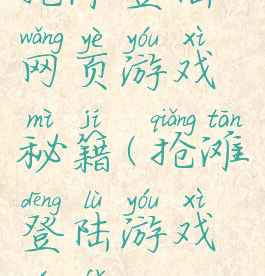 wǎng yè yóu xì
网页游戏
mì jí qiǎng tān
秘籍(抢滩
dēng lù yóu xì
登陆游戏